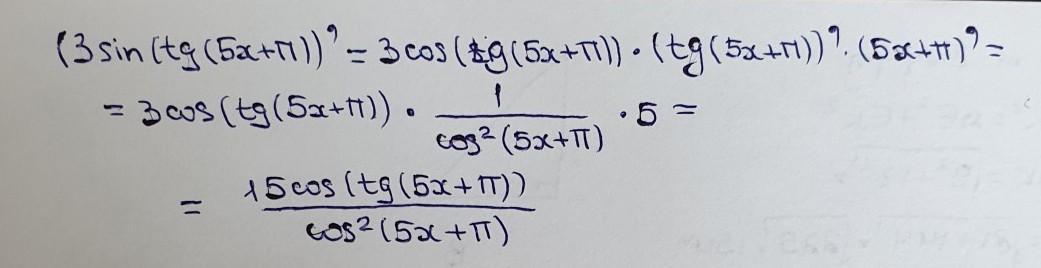 (3sin(tg(5x+π))' = 3cos(tg(5x+π)) · (tg(5x+π))' · (5x+π)' =
= 3cos(tg(5x+π)) · 1/cos²(5x+π) · 5 =
= 15cos(tg(5x+π))/cos²(5x+π)